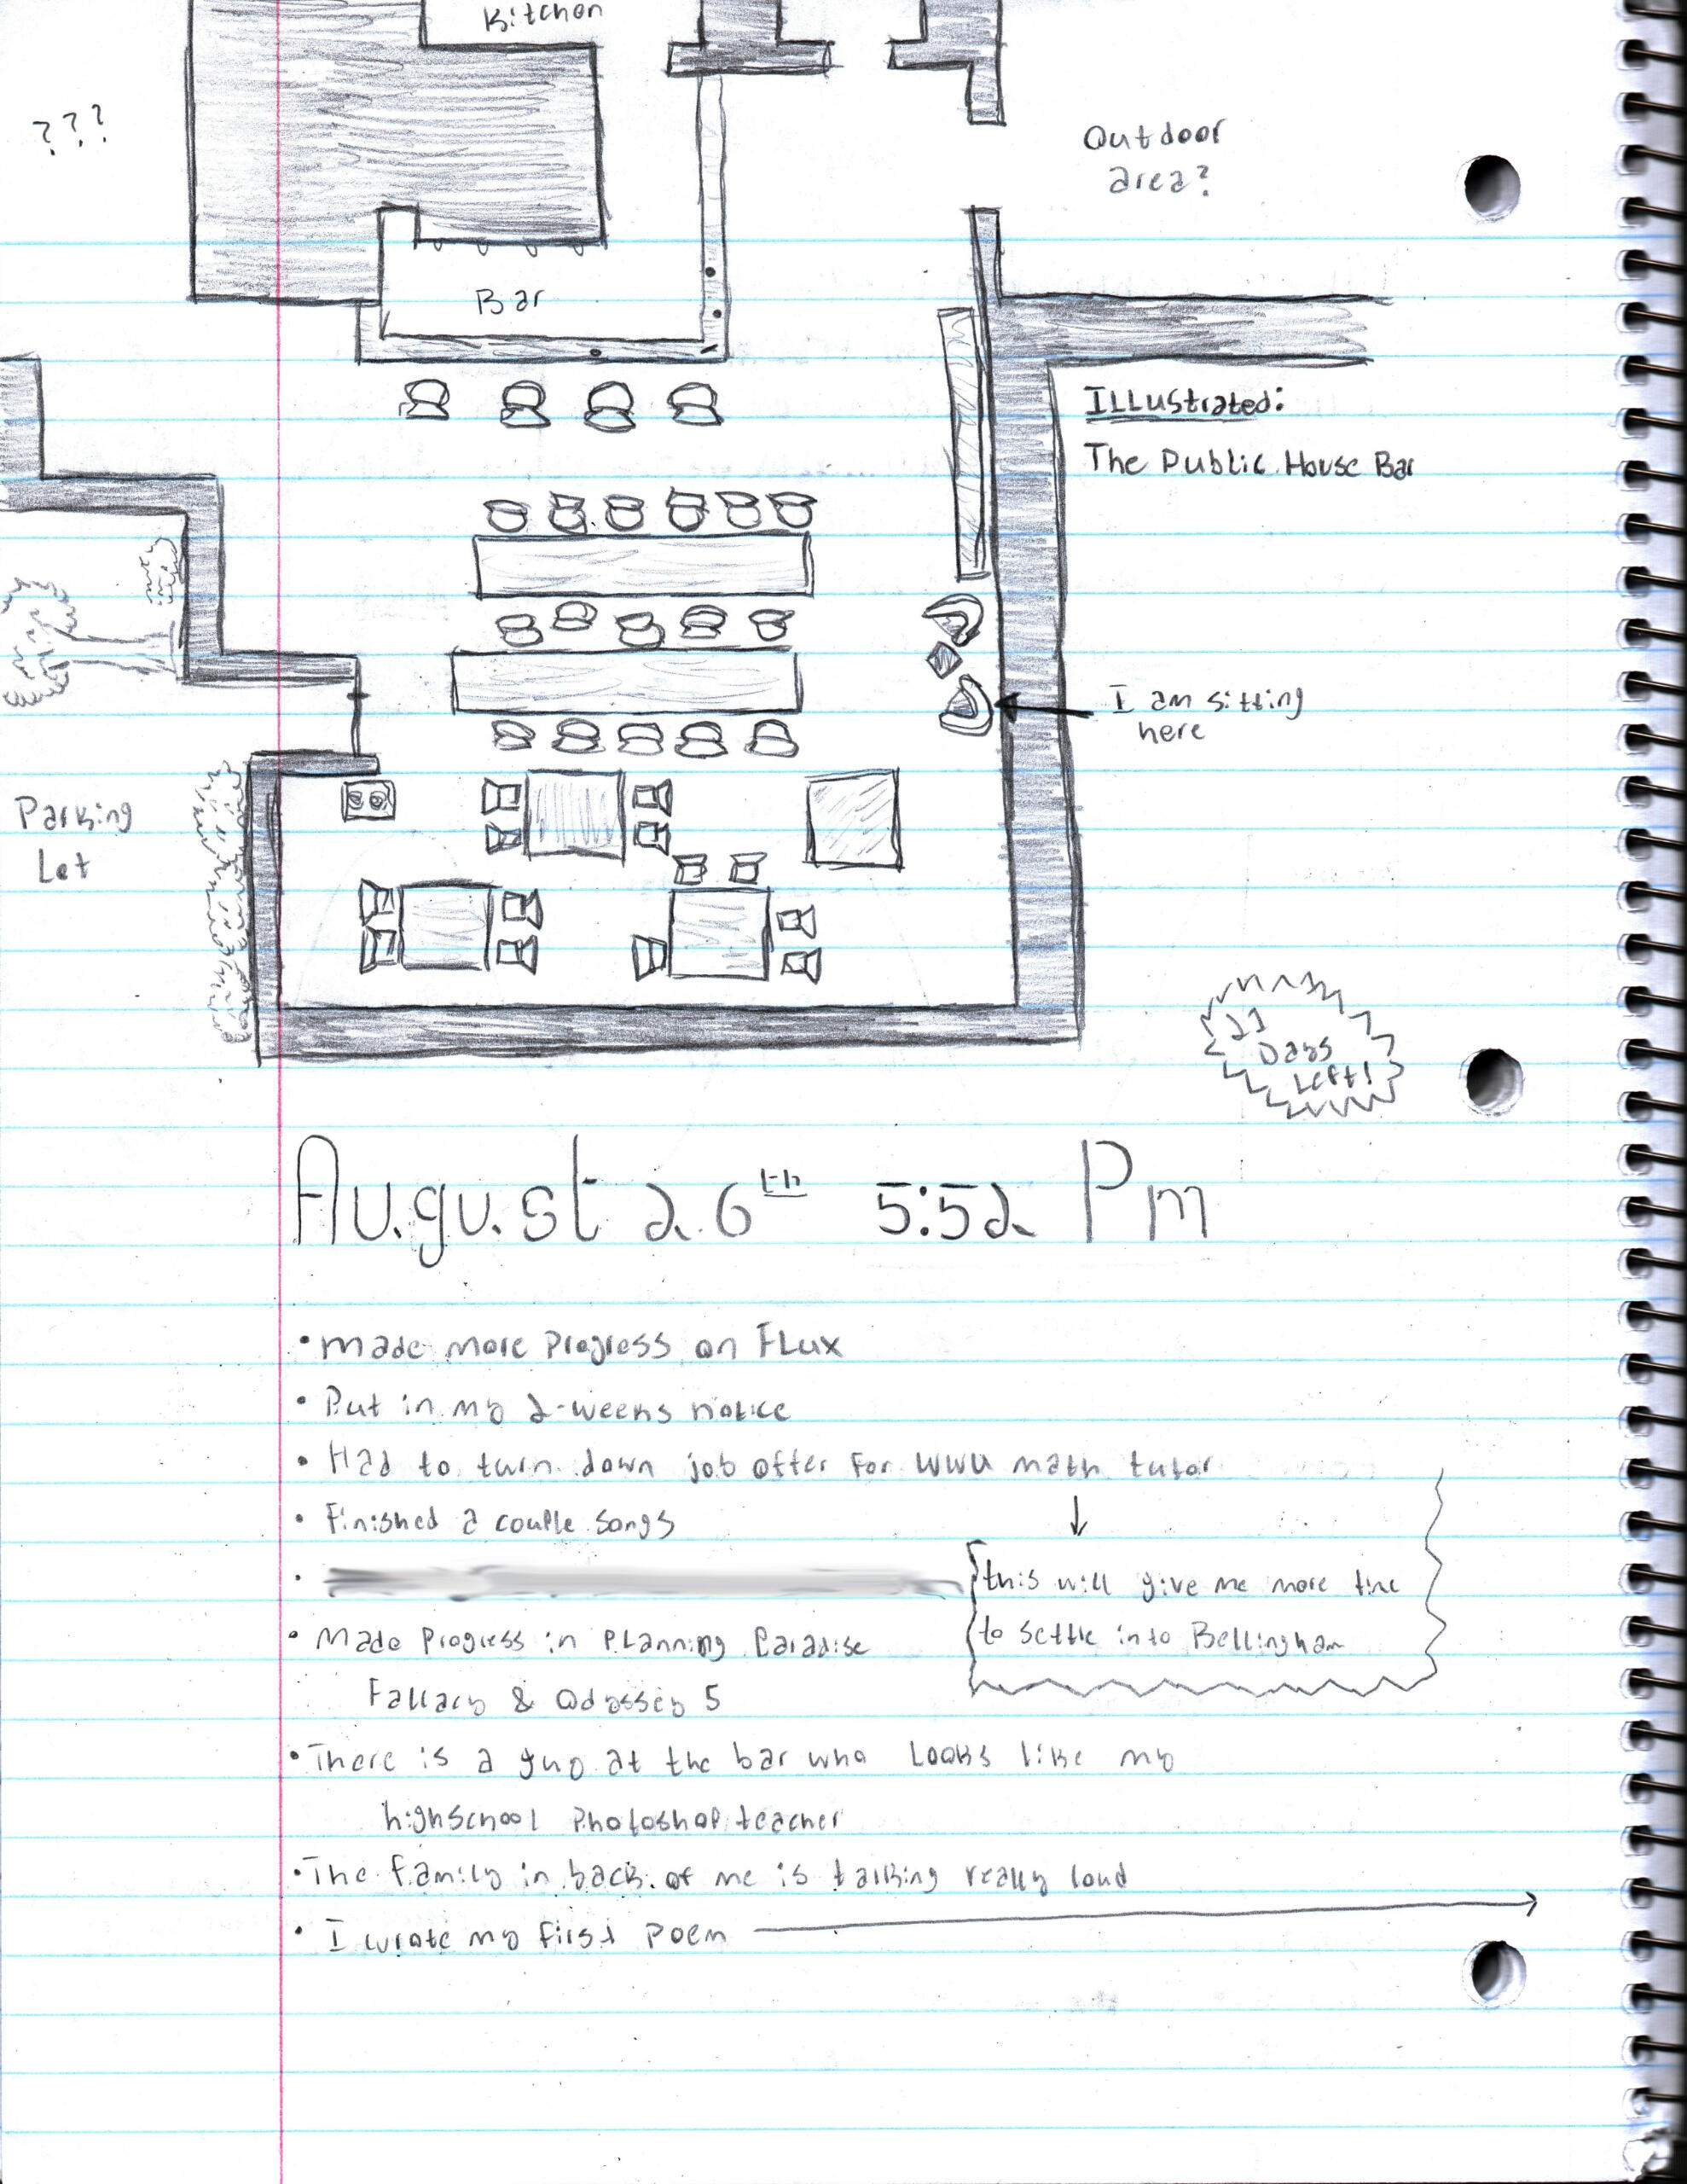 Kitchen
???
Outdoor
area?
Bar
ILLustrated:
The Public House Bar
I am sitting
here
Parking
Lot
21
Days
Left!
August 26th 5:52 Pm
• made more Progress on FLux
• Put in my 2-weeks notice
• Had to turn down job offer For WWU math tutor
• Finished a couple songs
↓
•
this will give me more time
to settle into Bellingham
• Made Progress in PLanning Paradise
Fallacy & Odyssey 5
• There is a guy at the bar who Looks like my
highschool Photoshop teacher
• The family in back of me is talking really loud
• I wrote my first Poem →